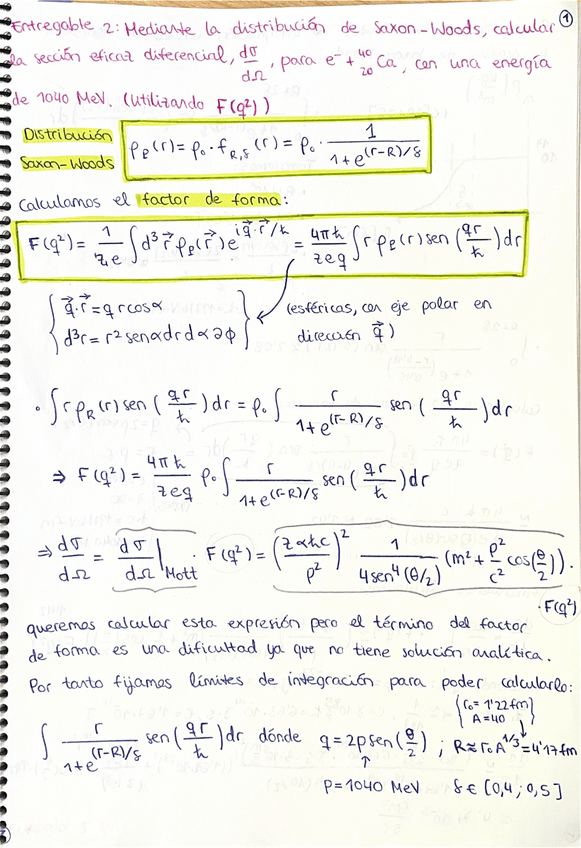 ①
Entregable 2: Mediante la distribución de Saxon-Woods, calcular
la sección eficaz diferencial, dσ/dΩ, para e⁻ + ⁴⁰₂₀Ca, con una energía
de 1040 MeV. (Utilizando F(q²))
Distribución
Saxon-Woods
ρ_R(r) = ρ₀·f_{R,δ}(r) = ρ₀· 1/(1+e^{(r-R)/δ})
Calculamos el factor de forma:
F(q²) = 1/(ze) ∫d³r⃗ ρ_R(r⃗)e^{iq⃗·r⃗/ħ} = 4πħ/(zeq) ∫r ρ_R(r) sen(qr/ħ)dr
{ q⃗·r⃗ = q r cosα
d³r = r² senα dr dα ∂ϕ
(esféricas, con eje polar en
dirección q⃗)
· ∫r ρ_R(r) sen(qr/ħ)dr = ρ₀ ∫ r/(1+e^{(r-R)/δ}) sen(qr/ħ)dr
⇒ F(q²) = 4πħ/(zeq) ρ₀ ∫ r/(1+e^{(r-R)/δ}) sen(qr/ħ)dr
⇒ dσ/dΩ = dσ/dΩ|Mott · F(q²) = (zαħc/p²)² 1/(4sen⁴(θ/2)) (m² + p²/c² cos(θ/2)).
·F(q²)
queremos calcular esta expresión pero el término del factor
de forma es una dificultad ya que no tiene solución analítica.
Por tanto fijamos límites de integración para poder calcularlo:
{ r₀ = 1'22 fm
A = 40 }
∫ r/(1+e^{(r-R)/δ}) sen(qr/ħ)dr, dónde q = 2p sen(θ/2); R≈r₀A^{1/3} = 4'17 fm
p = 1040 MeV δ ∈ [0,4 ; 0,5]